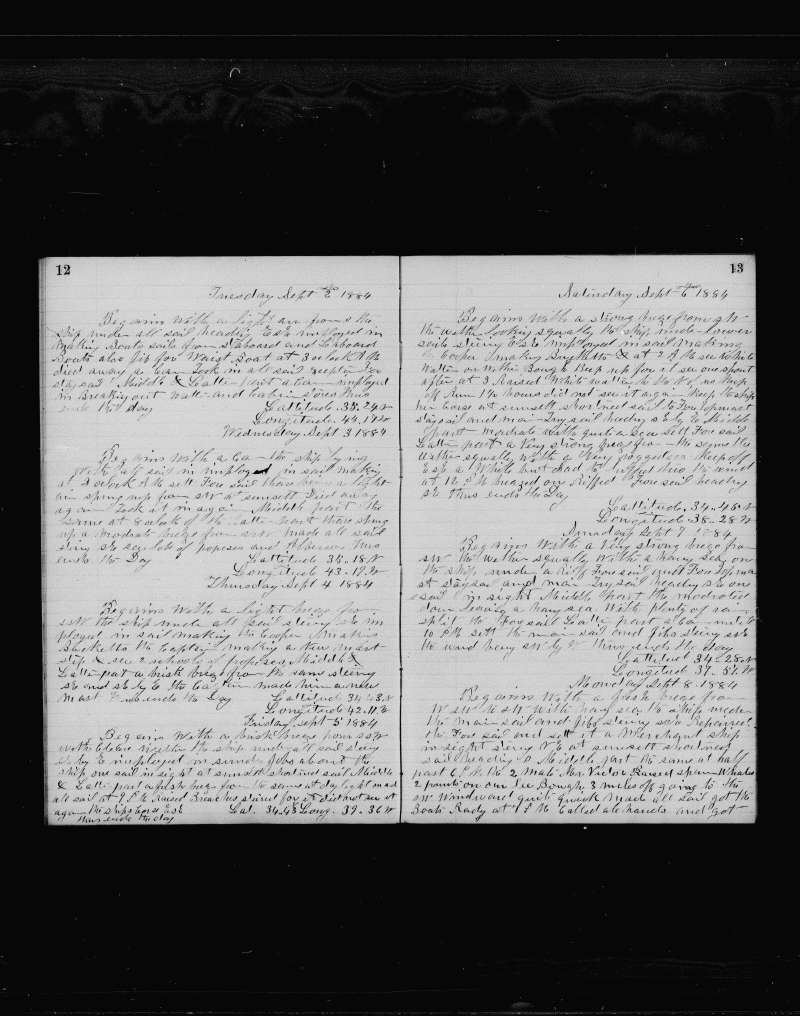 12
Tuesday Sept 2 1884
Begains With a light air from the
ship under all sail heading ESE imployed in
Making Boats sails for Starboard and Larboard
Boats also jib for Waist Boat at 3 oclock
died away a Took in all sail except Fore
stay sail Middle & Latter part a imployed
in Breaking out Water and Cabin Stores thus
ends the day
Lattitude. 35.24 N
Longitude. 44.19 W
Wednesday Sept 3 1884
Begains With a the ship lying
With all sail in imployed in sail making
at 3 oclock sett Fore sail there being a light
air spring up from SW at sunsett Died away
again Took it in again Middle part the
same at 8 oclock of the Latter part there spring
up a Modrate breze from SSW made all sail
stering of popeses and
ends the Day
Lattitude 35.18 N
Longitude 43.19 W
Thursday Sept 4 1884
Begains With a light breze from
SSW the ship under all sail stering im
ployed in sail making the Cooper Making
Bucketts the Captin making a New mast
step & see 2 schools of popeses Middle &
Latter part a brisk breze from the same stering
SE and SE by E the made him a new
mast ends the Day
Lattitude 34.63 N
Longitude 42.11 W
Friday Sept 5 1884
Begains With a brisk breze from SSW
Weather the ship under all sail stering
SE by E imployed in Jobs about the
ship one sail in sight at sunsett shortned sail Middle
& Latter part a fresh breze from the same at day light mad
all sail at Raised Breaches steared for it did not see it
again the ships
Lat. 34.43 Long. 39.36 W
thus ends the day
13
Saturday Sept 6 1884
Begains With a strong breze from SW
the wether looking squally the ship under lower
sails stering ESE imployed in sail making
the Cooper making Bucketts & at 2 P M see White
Water on Wether Bough Keep up for it see one spout
after at 3 Raised White water to the
off Run 1 1/2 hours did not see it again Keep the ship
her Corse at sunsett shortned sail to Fore topmast
staysail and main Try sail heading SE by E Middle
part Modrate With quite a sea Sett Fore sail
Latter part a Very strong breze from the same the
Wether squally With a Very rugged sea Keep off
ESE a White the wind
at 12 Riffed Fore sail heading
SE Thus ends the Day
Lattitude. 34.45 N
Longitude. 38.28 W
Sunday Sept 7 1884
Begains With a Very strong breze from
SW the wether squally With a havy sea on
the ship under a Riff Fore sail and Fore Top ma
st staysail and main Try sail heading SE one
sail in sight Middle part the modrated
down leaving a havy sea. With plenty of rain
split the Fore sail Latter part
10 sett the main sail and jibs stering
the wind being SW by W thus ends the Day
Lattitud 34.28 N
Longitud 37.51 W
Monday Sept 8. 1884
Begains With a fresh breze from
W SW to SW With havy sea the ship under
the main sail and jibs stering Repaired
the Fore sail and sett it a Merchant ship
in sight stering at sunsett shortned
sail heading S Middle part the same at half
past 6 the 2 Mate Mr Raised sperm Whales
2 points on our Lee Bough 3 miles off going to the
Windward quit quick Made all sail got the
Boats Rady at Called all hands and got